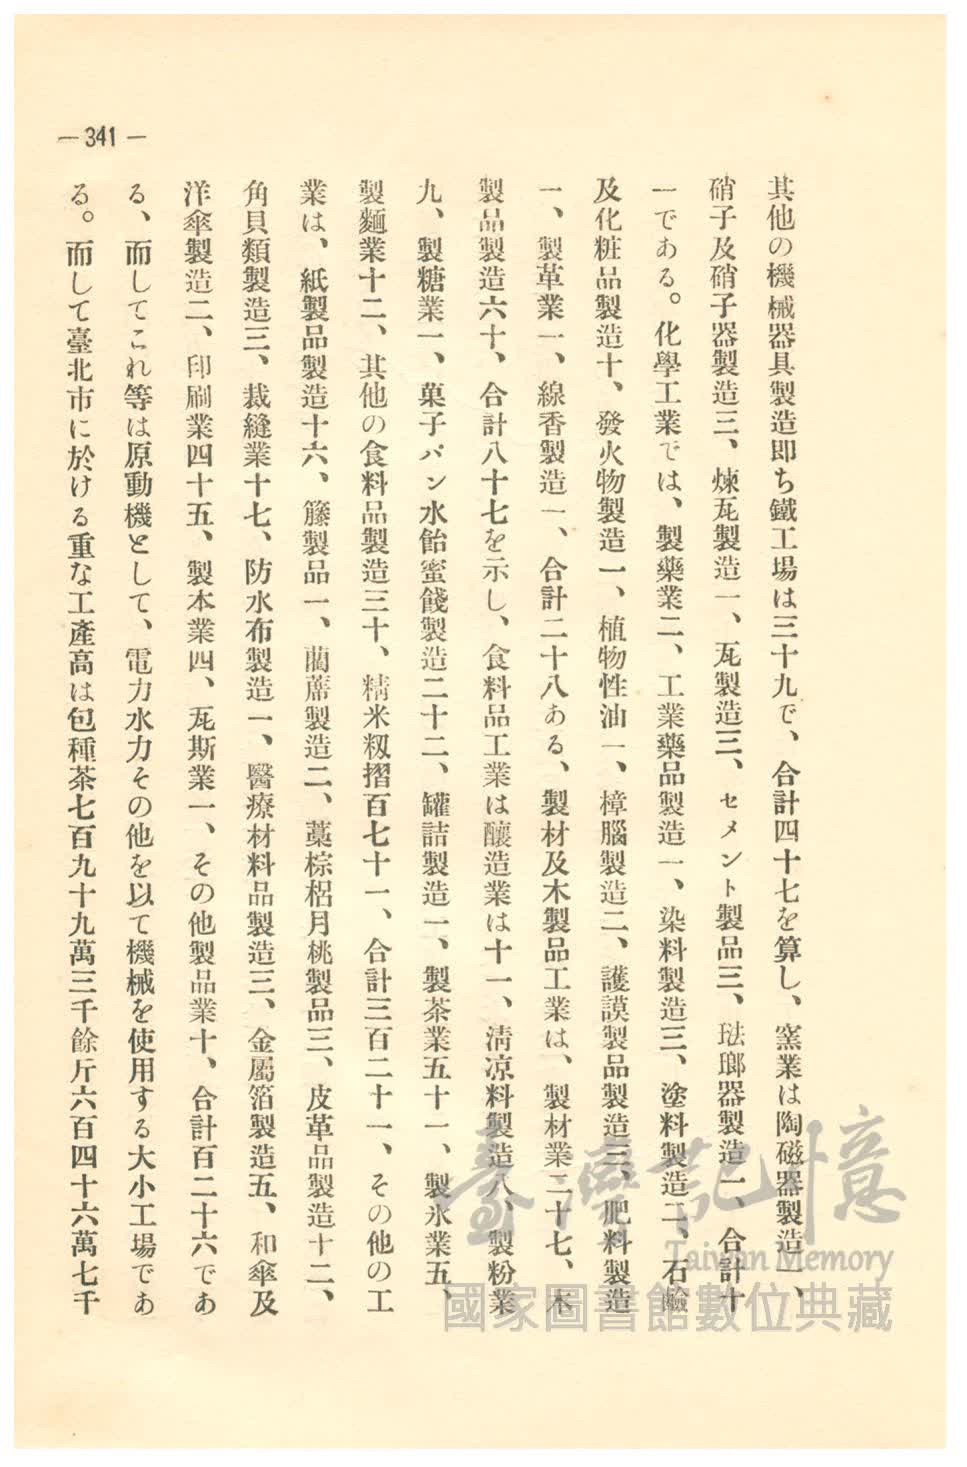 — 341 —
其他の機械器具製造即ち鐵工場は三十九で、合計四十七を算し、窯業は陶磁器製造一、
硝子及硝子器製造三、煉瓦製造一、瓦製造三、セメント製品三、琺瑯器製造一、合計十
一である。化學工業では、製藥業二、工業藥品製造一、染料製造三、塗料製造二、石鹼
及化粧品製造十、發火物製造一、植物性油一、樟腦製造二、護謨製品製造三、肥料製造
一、製革業一、線香製造一、合計二十八ある、製材及木製品工業は、製材業二十七、木
製品製造六十、合計八十七を示し、食料品工業は釀造業は十一、淸凉料製造八、製粉業
九、製糖業一、菓子パン水飴蜜餞製造二十二、罐詰製造一、製茶業五十一、製氷業五、
製麵業十二、其他の食料品製造三十、精米籾摺百七十一、合計三百二十一、その他の工
業は、紙製品製造十六、籐製品一、藺蓆製造二、藁棕梠月桃製品三、皮革品製造十二、
角貝類製造三、裁縫業十七、防水布製造一、醫療材料品製造三、金屬箔製造五、和傘及
洋傘製造二、印刷業四十五、製本業四、瓦斯業一、その他製品業十、合計百二十六であ
る、而してこれ等は原動機として、電力水力その他を以て機械を使用する大小工場であ
る。而して臺北市に於ける重な工產高は包種茶七百九十九萬三千餘斤六百四十六萬七千
臺灣記憶
Taiwan Memory
國家圖書館數位典藏